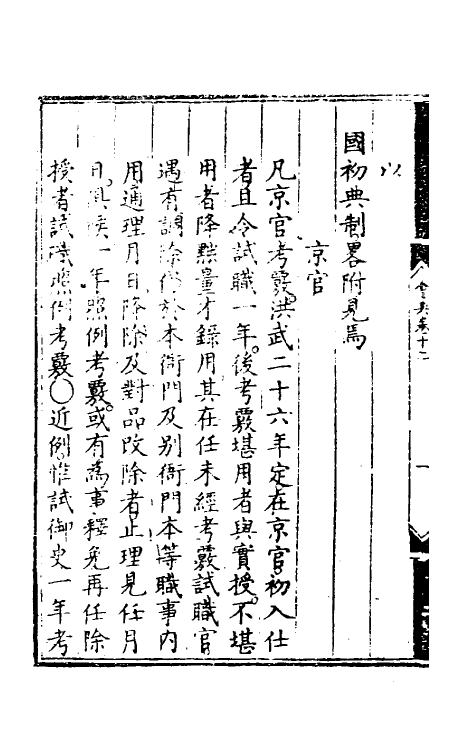 以
國初典制畧附見焉
京官
凡京官考覈洪武二十六年定在京官初入仕
者且令試職一年後考覈堪用者與實授不堪
用者降黜量才錄用其在任未經考覈試職官
遇有調除仍於本衙門及別衙門本等職事內
用通理月日降除及對品改除者止理見任月
日俱候一年照例考覈或有為事釋免再任除
授者試職照例考覈〇近例惟試御史一年考
會典卷十二
一